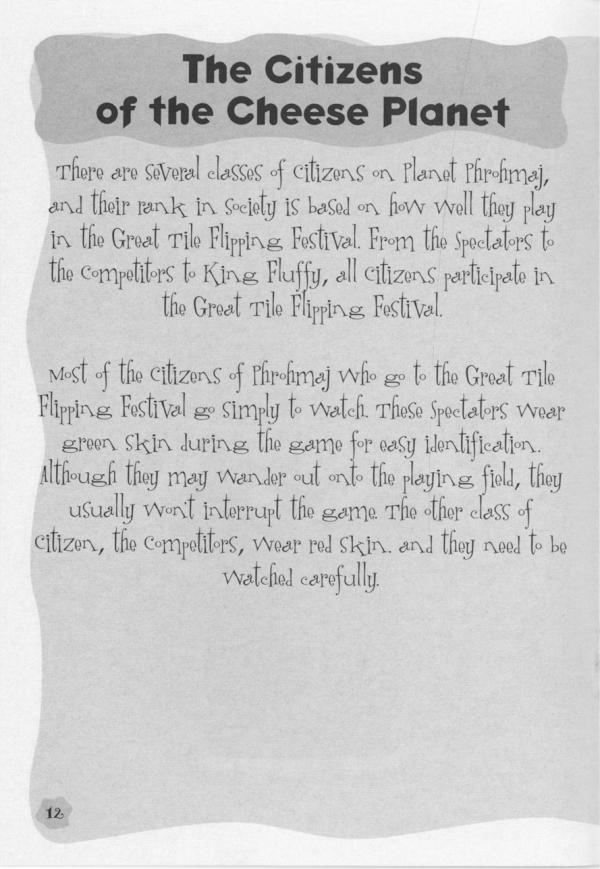 The Citizens
of the Cheese Planet
There are several classes of citizens on Planet Phrohmaj,
and their rank in society is based on how well they play
in the Great Tile Flipping Festival. From the spectators to
the competitors to King Fluffy, all citizens participate in
the Great Tile Flipping Festival.
Most of the citizens of Phrohmaj who go to the Great Tile
Flipping Festival go simply to watch. These spectators wear
green skin during the game for easy identification.
Although they may wander out onto the playing field, they
usually won't interrupt the game. The other class of
citizen, the competitors, wear red skin. and they need to be
watched carefully.
12